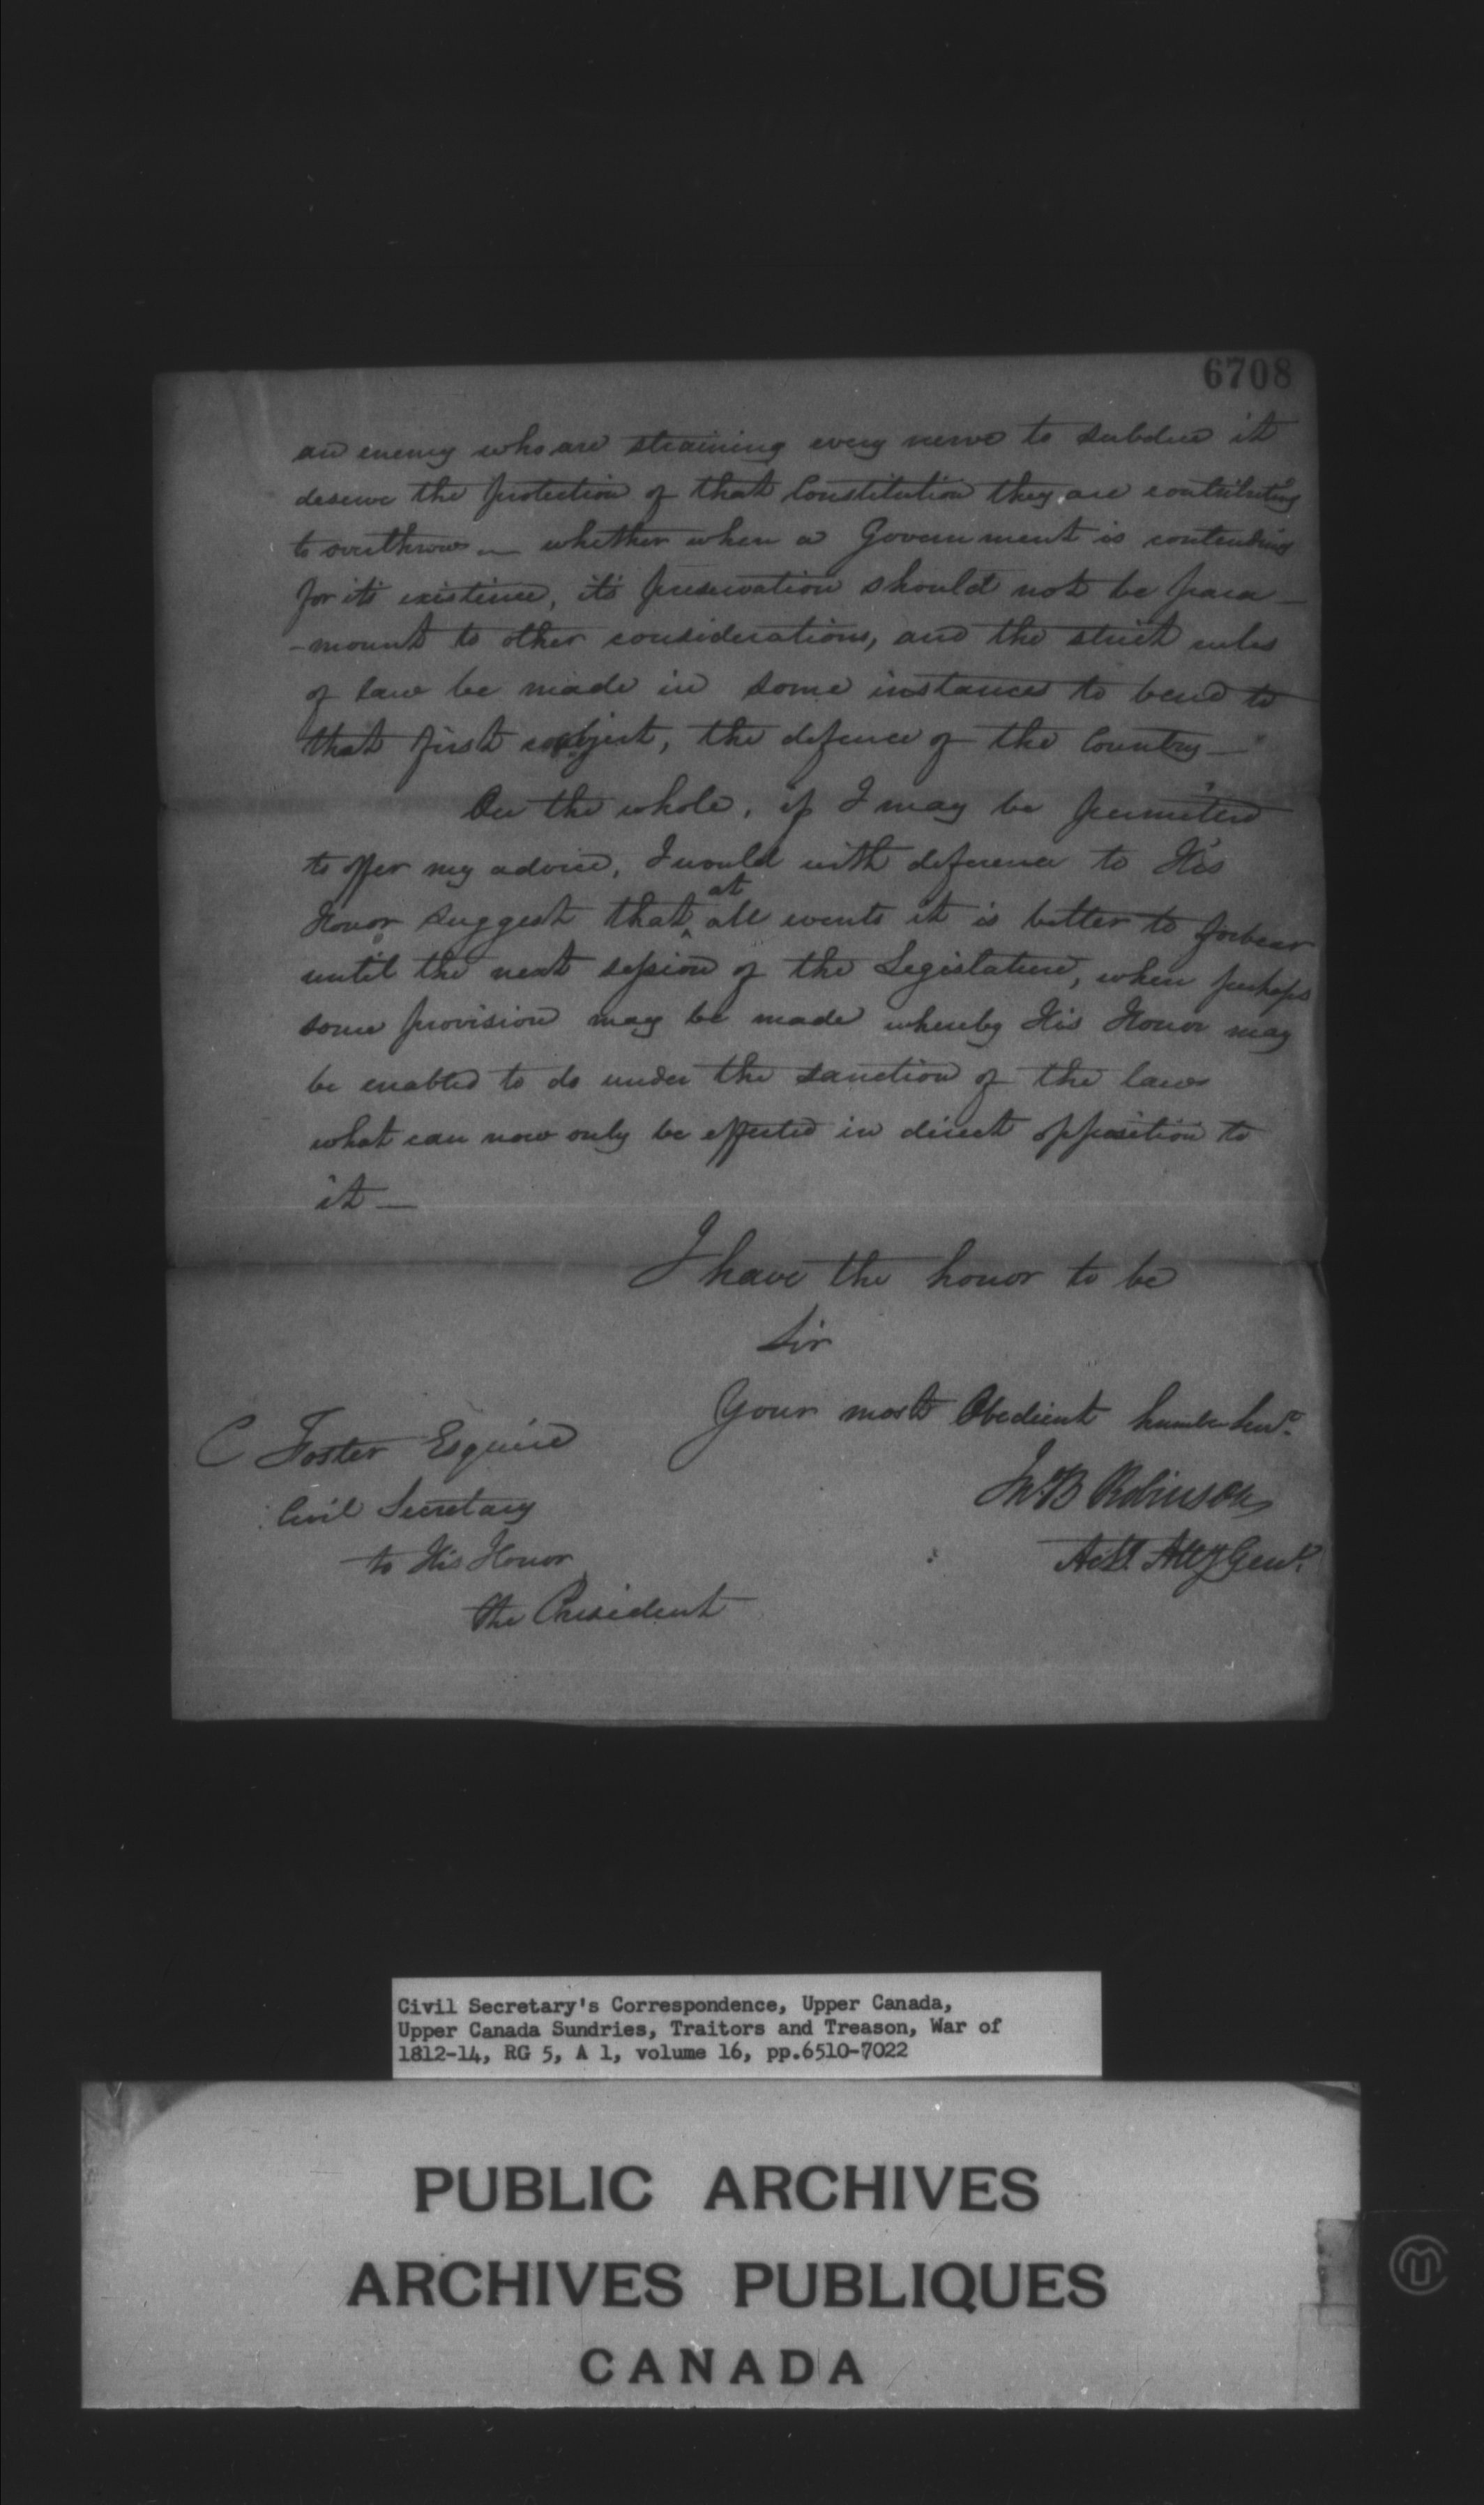 6708
an enemy who are straining every nerve to subdue it
deserve the protection of that Constitution they are contributing
to overthrow — whether when a Government is contending
for it's existence, it's preservation should not be para-
-mount to other considerations, and the strict rules
of law be made in some instances to bend to
that first object, the defence of the Country —"
On the whole, if I may be permitted
to offer my advice, I would with deference to His
at
Honor suggest that ^ all events it is better to forbear
until the next session of the Legislature, when perhaps
some provision may be made whereby His Honor may
be enabled to do under the sanction of the laws
what can now only be effected in direct opposition to
it —
I have the honor to be
Sir
Your most Obedient humble Servt.
C Foster Esquire
Jn. B Robinson
Civil Secretary
to His Honor
Actg. Atty Genl.
the President
Civil Secretary's Correspondence, Upper Canada,
Upper Canada Sundries, Traitors and Treason, War of
1812-14, RG 5, A 1, volume 16, pp.6510-7022
PUBLIC ARCHIVES
ARCHIVES PUBLIQUES
CANADA